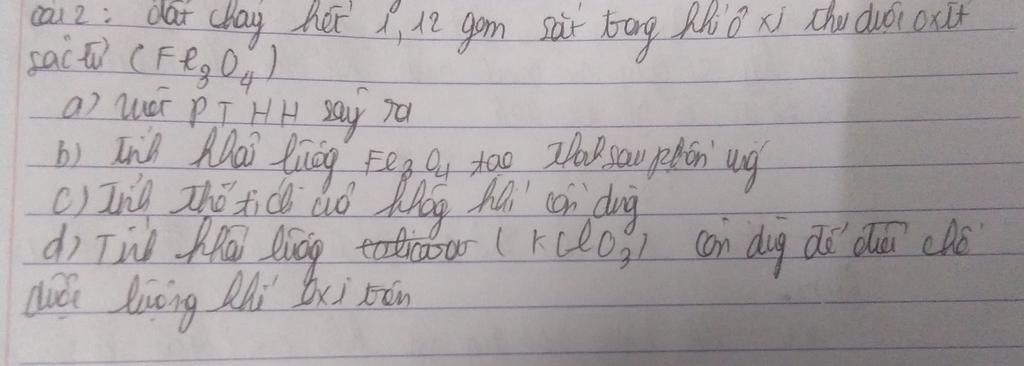 bài 2: đốt cháy hết 1,12 gam sắt trong khí ô xi thu được oxít
sắc từ (Fe3O4)
a) viết PTHH sảy ra
b) Tính khối lượng Fe3O4 tạo thành sau phản ứng
c) Tính thể tích của không khí cần dùng
d) Tính khối lượng (KClO3) cần dùng để điều chế
được lượng khí Oxi trên